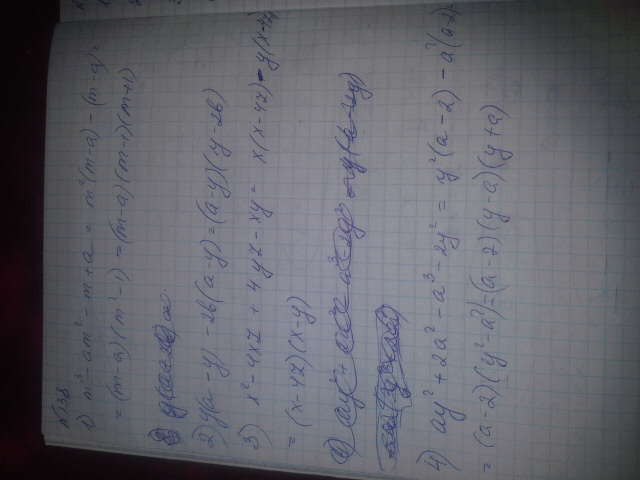 №138
1) m³ - am² - m + a = m²(m-a) - (m-a) =
= (m-a)(m²-1) = (m-a)(m-1)(m+1)
2) y(a-y) - 2b(a-y) = (a-y)(y-2b)
3) x² - 4xz + 4yz - xy = x(x-4z) - y(x-4z)
= (x-4z)(x-y)
4) ay² + 2a² - a³ - 2y² = y²(a-2) - a²(a-2)
= (a-2)(y²-a²) = (a-2)(y-a)(y+a)